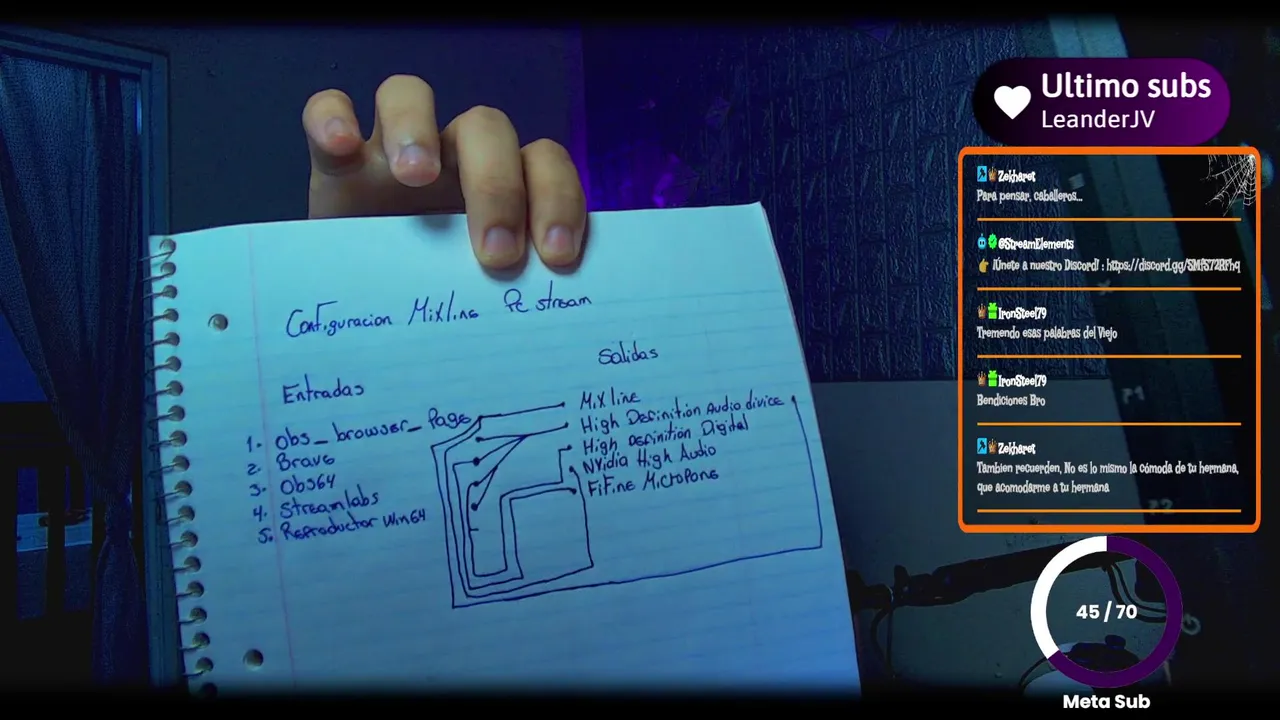 Configuracion Mixline Pc stream
Entradas
1.- obs_browser_Page
2.- Brave
3.- Obs64
4.- Streamlabs
5.- Reproductor Win64
Salidas
Mixline
High Definition Audio divice
High Definition Digital
NVidia High Audio
FiFine Microfono
Ultimo subs
LeanderJV
Zekharet
Para pensar, caballeros...
@StreamElements
¡Únete a nuestro Discord! :
IronSteel79
Tremendo esas palabras del Viejo
IronSteel79
Bendiciones Bro
Zekharet
Tambien recuerden, No es lo mismo la cómoda de tu hermana,
que acomodarme a tu hermana
45 / 70
Meta Sub